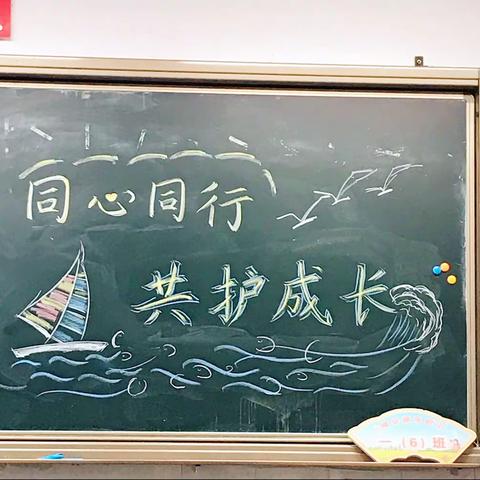 同心同行
共护成长
一（6）班